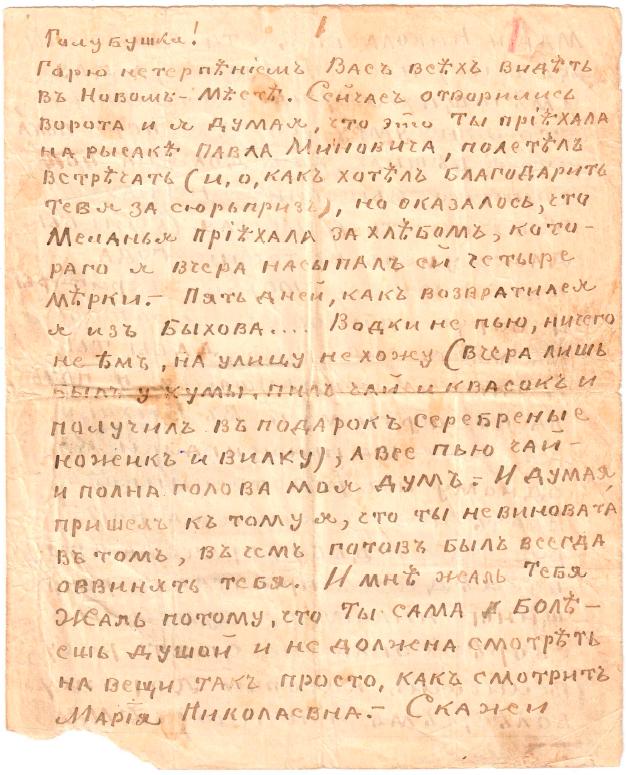 Голубушка!
Горю нетерпѣніемъ Васъ всѣхъ видѣть
въ Новомъ-Мѣстѣ. Сейчасъ отворились
ворота и я думая, что это Ты пріѣхала
на рысакѣ Павла Миновича, полетѣлъ
встрѣчать (и, о, какъ хотѣлъ благодарить
тебя за сюрьпризъ), но оказалось, что
Меланья пріѣхала за хлѣбомъ, кото-
раго я вчера насыпалъ ей четыре
мѣрки.- Пять дней, какъ возвратился
я изъ Быхова.... Водки не пью, ничего
не ѣмъ, на улицу не хожу (вчера лишь
былъ у кумы, пилъ чай и квасокъ и
получилъ въ подарокъ серебреные
ноженкъ и вилку); а все пью чай-
и полна голова моя думъ.- И думая,
пришелъ къ тому я, что ты невиновата
въ томъ, въ чемъ готовъ былъ всегда
оввинять тебя. И мнѣ жаль Тебя
Жаль потому, что Ты сама болѣ-
ешь душой и не должна смотрѣть
на вещи такъ просто, какъ смотритъ
Марія Николаевна.- Скажи